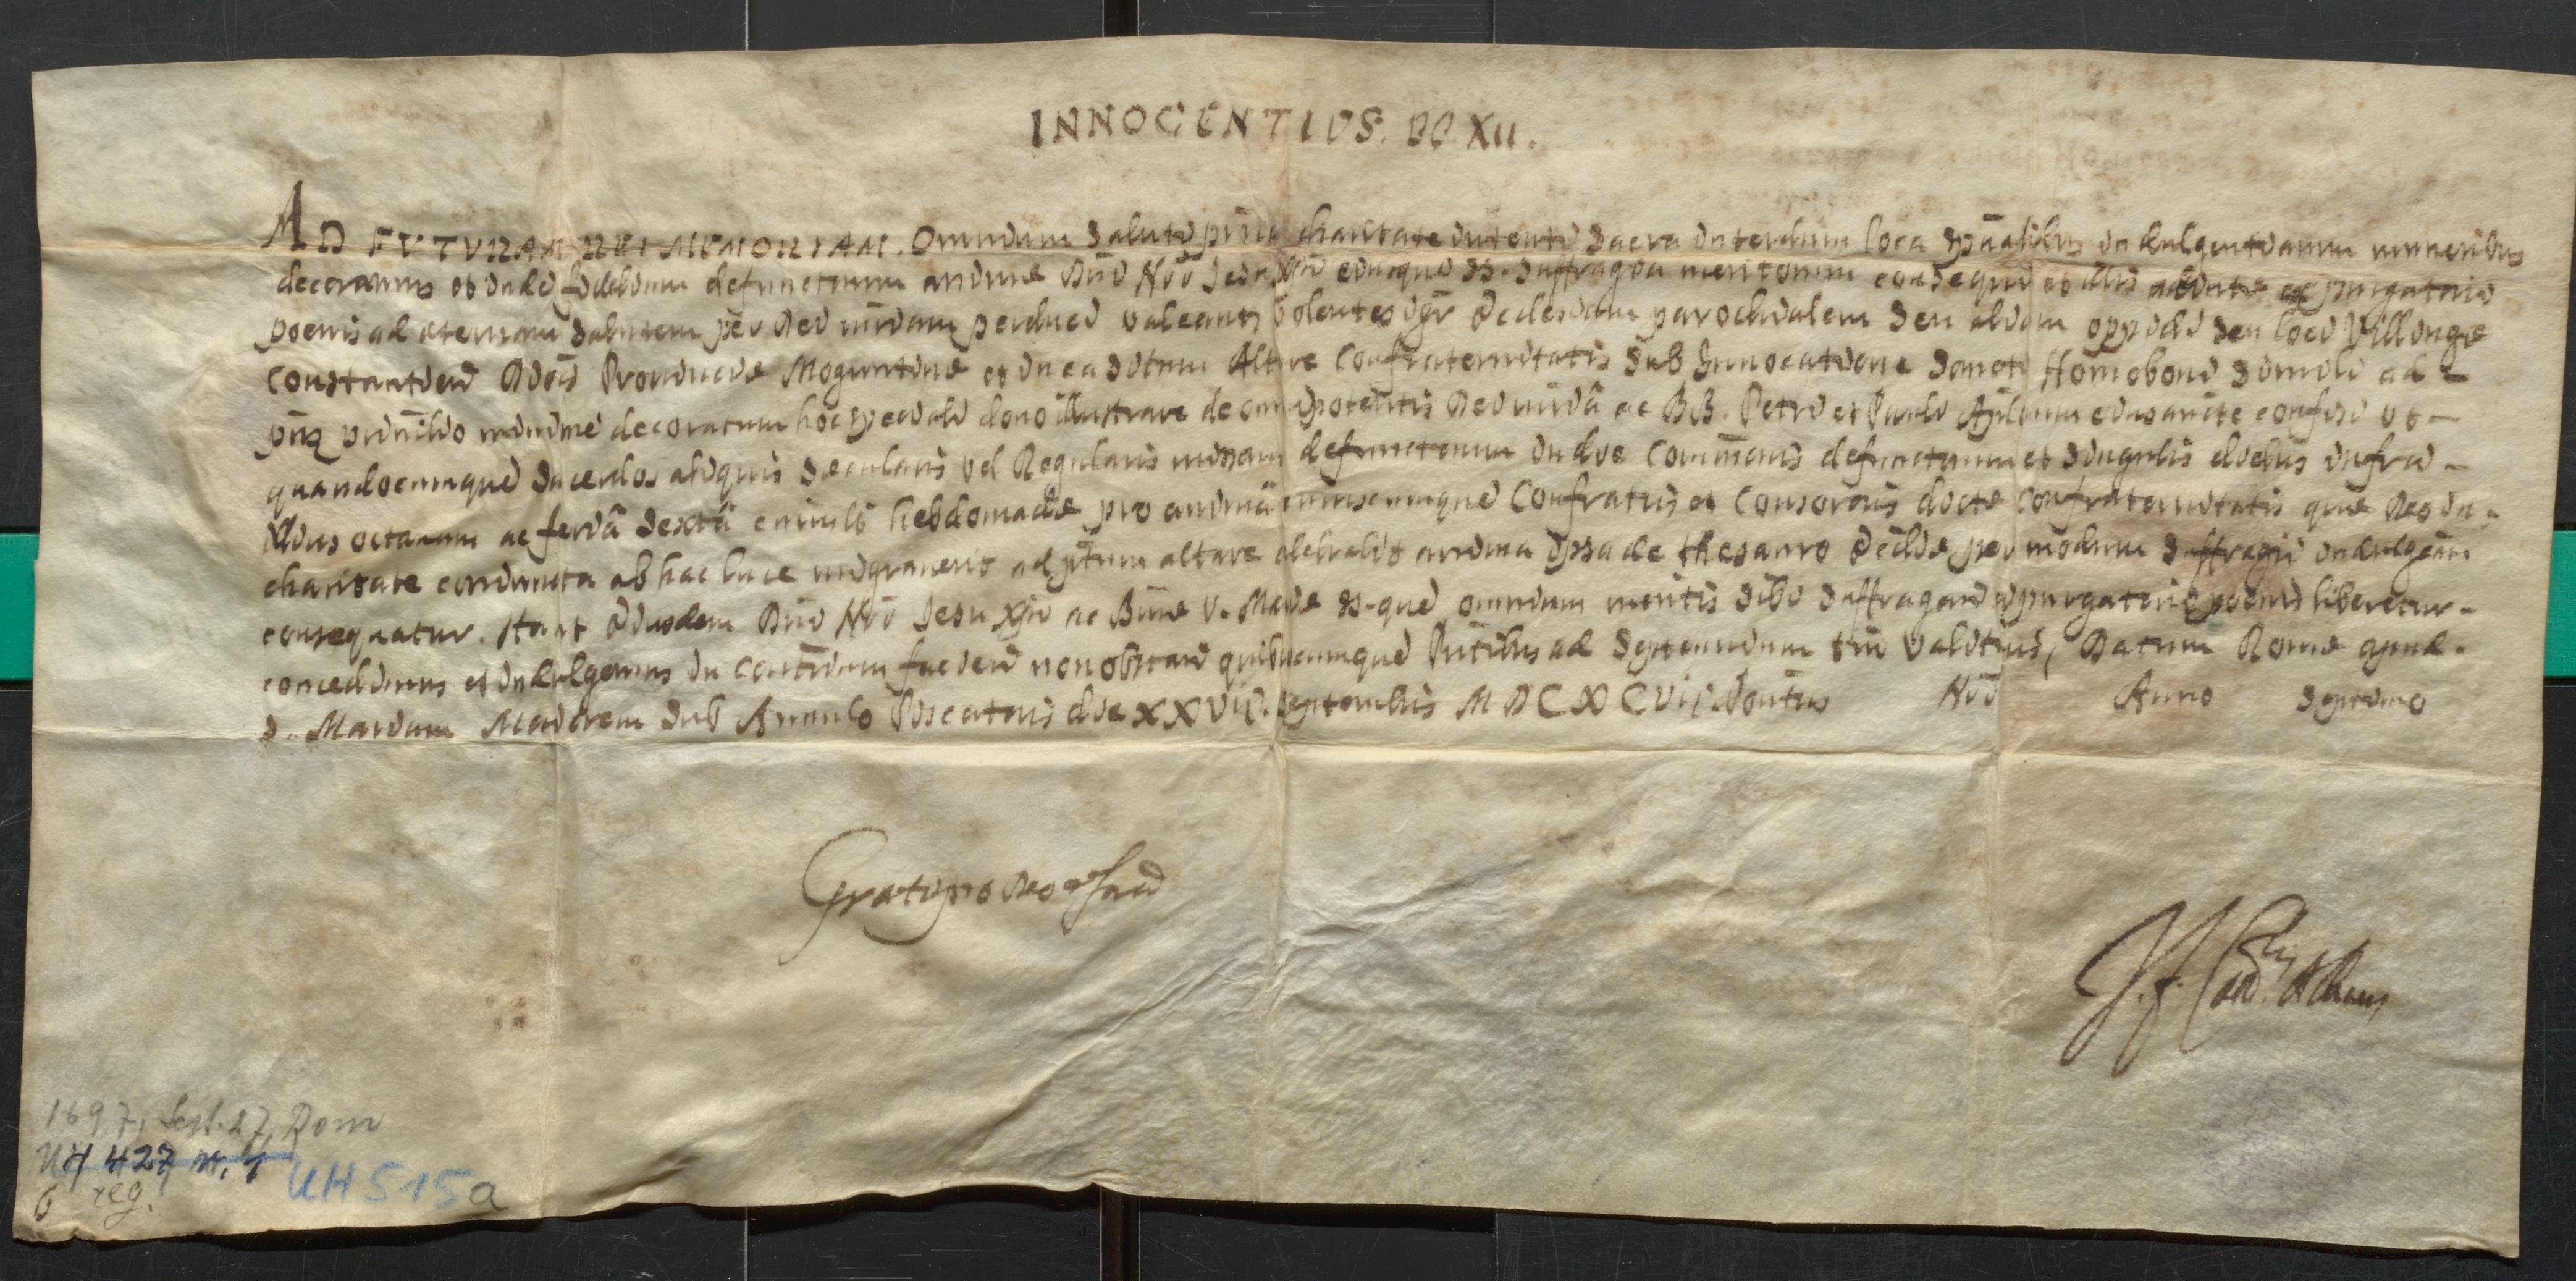 INNOCENTIUS. PP. XII.
AD FUTURAM REI MEMORIAM. Omnium saluti prna charitate intenti sacra interdum loca spūalibus indulgentiarum muneribus
decoramus et inde fidelium defunctorum animæ Dnī Nrī Jesu Xri eiusque ss. suffragia meritorum consequi et illis adiutæ ex purgatorii
poenis ad æternam salutem per Dei miām perduci valeant, volentes igr̄ Ecclesiam parochialem seu aliam oppidi seu loci Villingæ
Constantien̄ Diœc̄ Provinciæ Moguntinæ et in ea situm Altare Confraternitatis sub Invocatione Sancti Homoboni simili ad-
pn̄s privil̄io minime decoratum hoc speciali dono illustrare de omnipotentis Dei miā ac BB. Petri et Pauli Ap̄lorum eius aucte confisi ut-
quandocumque sacerdos aliquis secularis vel Regularis missam defunctorum in die Com̄m̄onis defunctorum et singulis diebus infra-
illius octavam ac feria sexta cuiuslt̄ hebdomadæ pro anima cuiuscumque Confratris et Consororis dictæ Confraternitatis quæ Deo in-
charitate coniuncta ab hac luce migraverit ad p̄tum altare celebrabit anima ipsa de thesauro Ecclīæ per modum suffragii indulgēam
consequatur. Ita ut Eiusdem Dnī Nrī Jesu Xri ac Bm̄æ V. Mariæ ss.que omnium meritis sibi suffragan̄ e purgatorii poenis liberetur-
concedimus et indulgemus in contrium facien̄ non obstan̄ quibuscumque Pn̄tibus ad Septennium tm̄ valituris, Datum Romæ apud-
S. Mariam Maiorem sub Annulo Piscatoris die XXVII. Septembris MDCXCVII. Pontūs Nrī Anno Septimo
Gratis pro Deo et
J. F. Card.
1697, Sept. 27, Rom
UH 427 N. 1
6 reg.
UH 515a